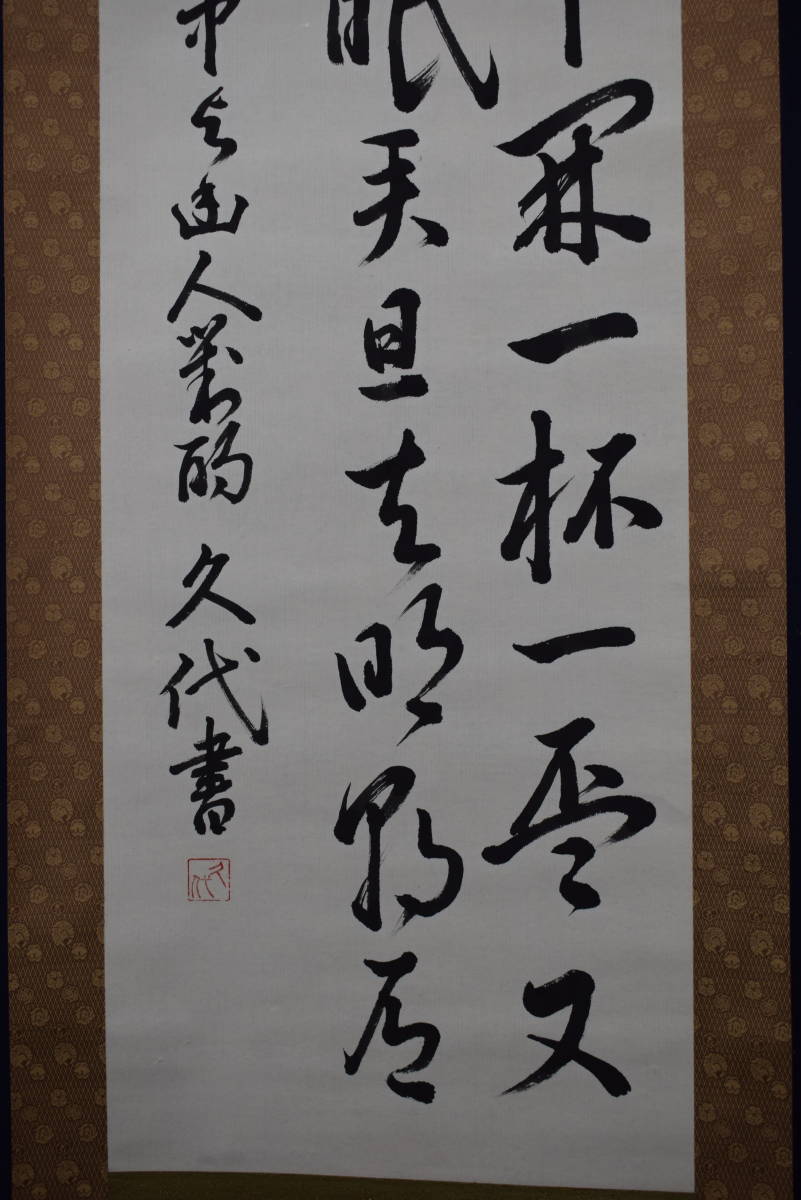 開一杯一盃又
眠君且去明朝有
中与幽人對酌 久代書
久代